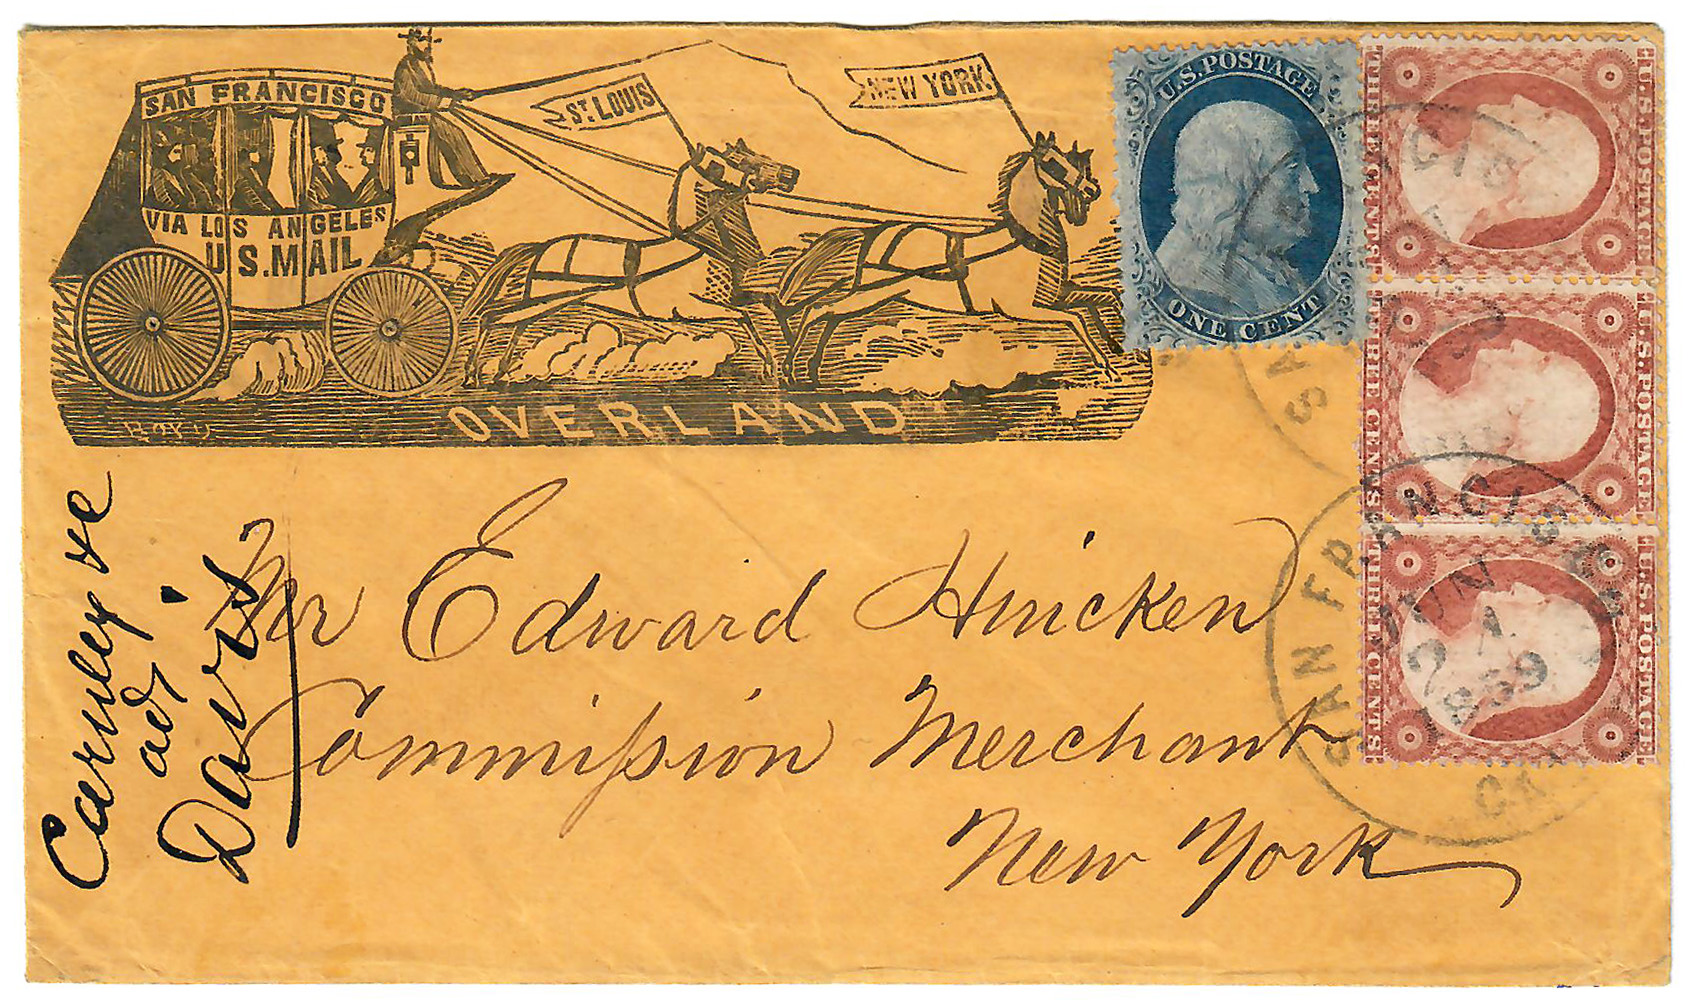 SAN FRANCISCO
VIA LOS ANGELES
U.S. MAIL
ST. LOUIS
NEW YORK.
OVERLAND
U.S. POSTAGE
ONE CENT
U.S. POSTAGE
THREE CENTS
U.S. POSTAGE
THREE CENTS
U.S. POSTAGE
THREE CENTS
SAN FRANCISCO
JUN
1859
CAL
Mr Edward Huicken
Commission Merchant
New York
Davis